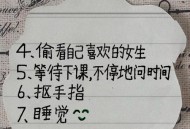 4、偷看自己喜欢的女生
5、等待下课,不停地问时间
6、抠手指
7、睡觉